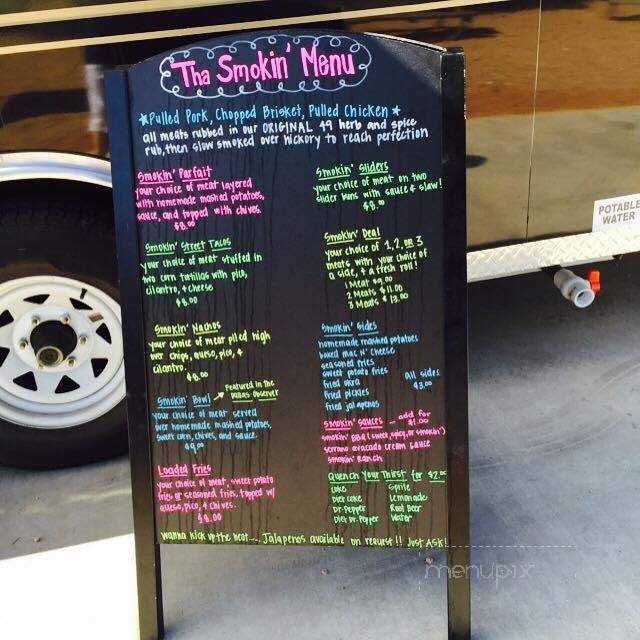 Tha Smokin' Menu
*Pulled Pork, Chopped Brisket, Pulled Chicken*
all meats rubbed in our ORIGINAL 49 herb and spice
rub, then slow smoked over hickory to reach perfection
Smokin' Parfait
your choice of meat layered
with homemade mashed potatoes,
sauce, and topped with chives.
$8.00
Smokin' Street Tacos
your choice of meat stuffed in
two corn tortillas with pico,
cilantro, + cheese
$8.00
Smokin' Nachos
your choice of meat piled high
over chips, queso, pico, +
cilantro.
$8.00
Featured in the
Dallas Observer
Smokin' Bowl
your choice of meat served
over homemade mashed potatoes,
sweet corn, chives, and sauce.
$9.00
Loaded Fries
your choice of meat, sweet potato
fries or seasoned fries, topped w/
queso, pico, + chives.
$8.00
Smokin' Sliders
your choice of meat on two
slider buns with sauce & slaw!
$8.00
Smokin' Deal
your choice of 1, 2, or 3
meats with your choice of
a side, + a fresh roll!
1 Meat $9.00
2 Meats $11.00
3 Meats $13.00
Smokin' Sides
homemade mashed potatoes
baked mac n' cheese
seasoned fries
sweet potato fries
fried okra
fried pickles
fried jalapenos
all sides
$3.00
Smokin' Sauces - add for
$1.00
smokin' BBQ (sweet, spicy, or smokin')
serrano avacado cream sauce
smokin' Ranch
Quench Your Thirst for $2.00
Coke Sprite
Diet Coke Lemonade
Dr. Pepper Root Beer
Diet Dr. Pepper Water
wanna kick up the heat... Jalapenos available on request!! Just ASK!
POTABLE
WATER
menupix